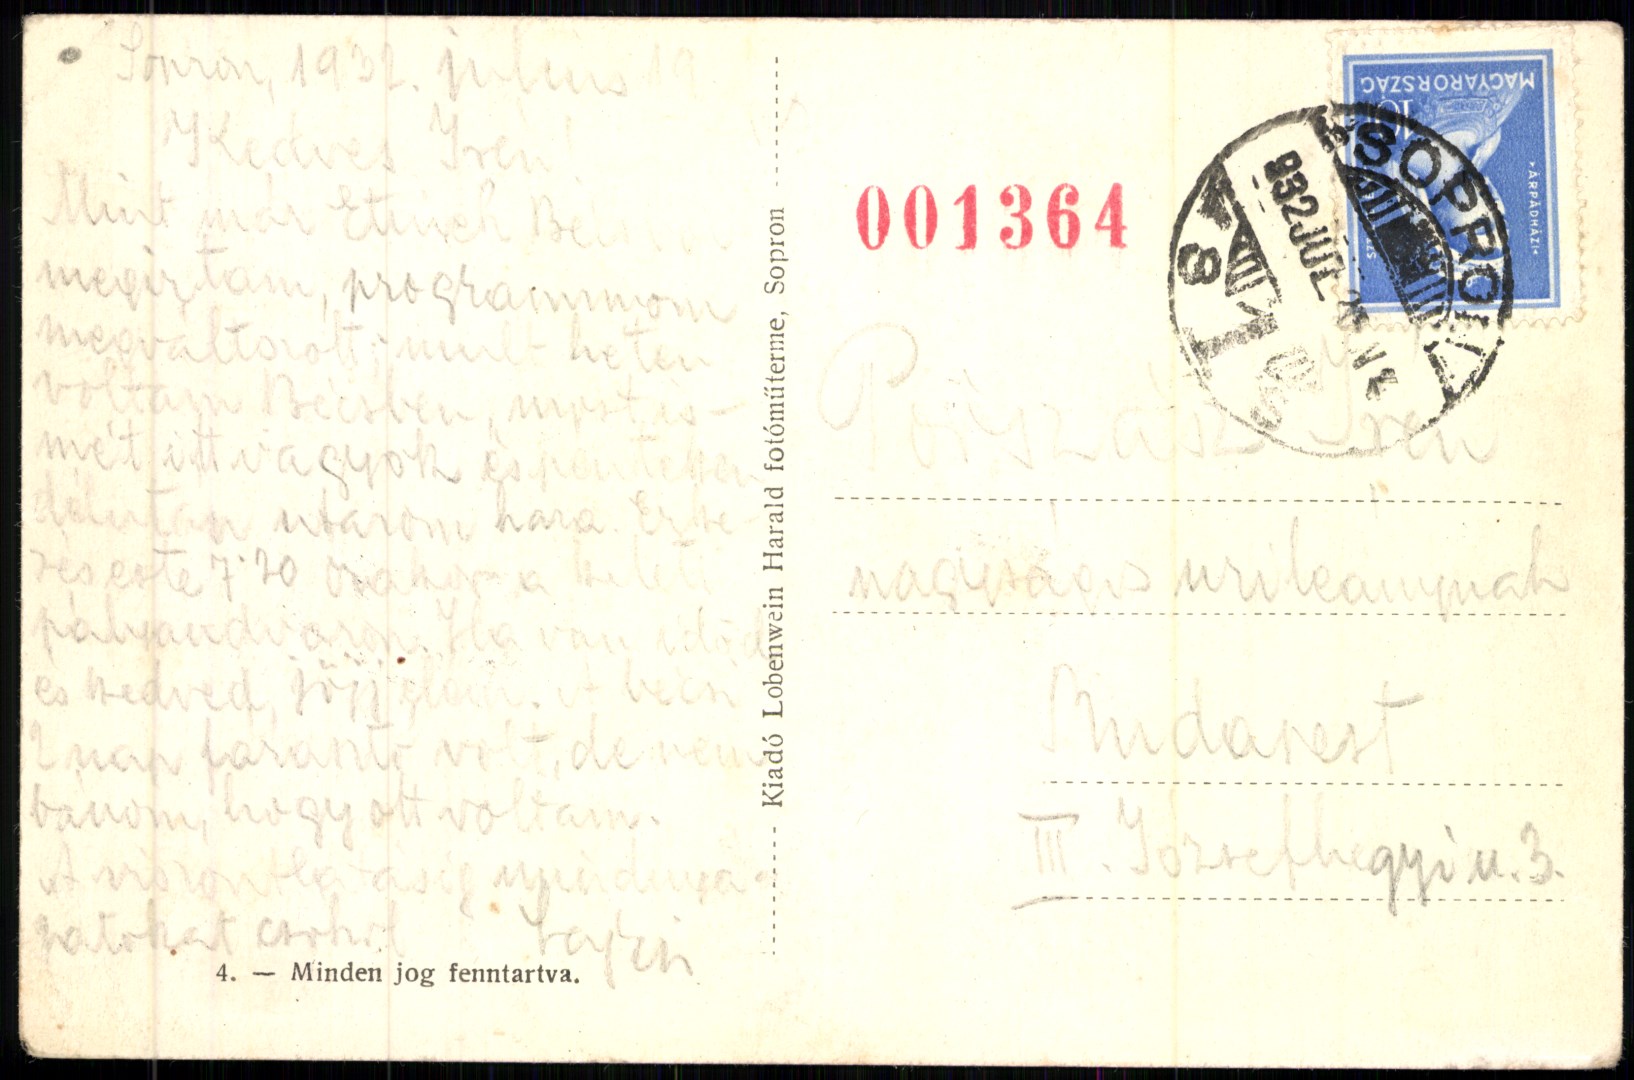 Sopron, 1932. julius 19
Kedves Irén!
Mint már Etusch
megirtam, programmom
megváltozott; mult héten
voltam Bécsben, most is-
mét itt vagyok és pénteken
délután utazom haza. Érke-
zés este 7.20 órakor a keleti
pályaudvaron. Ha van időd
és kedved, jöjj elém. A bécsi
2 nap fárasztó volt, de nem
bánom, hogy ott voltam.
A viszontlátásig mindnyá-
jatokat csókol
4. — Minden jog fenntartva.
Kiadó Lobenwein Harald fotóműterme, Sopron
001364
MAGYARORSZÁG
10
·ÁRPÁDHÁZI·
SOPRON
932 JUL
8
Irén
nagyságos urileánynak
Budapest
III. Józsefhegyi u. 3.